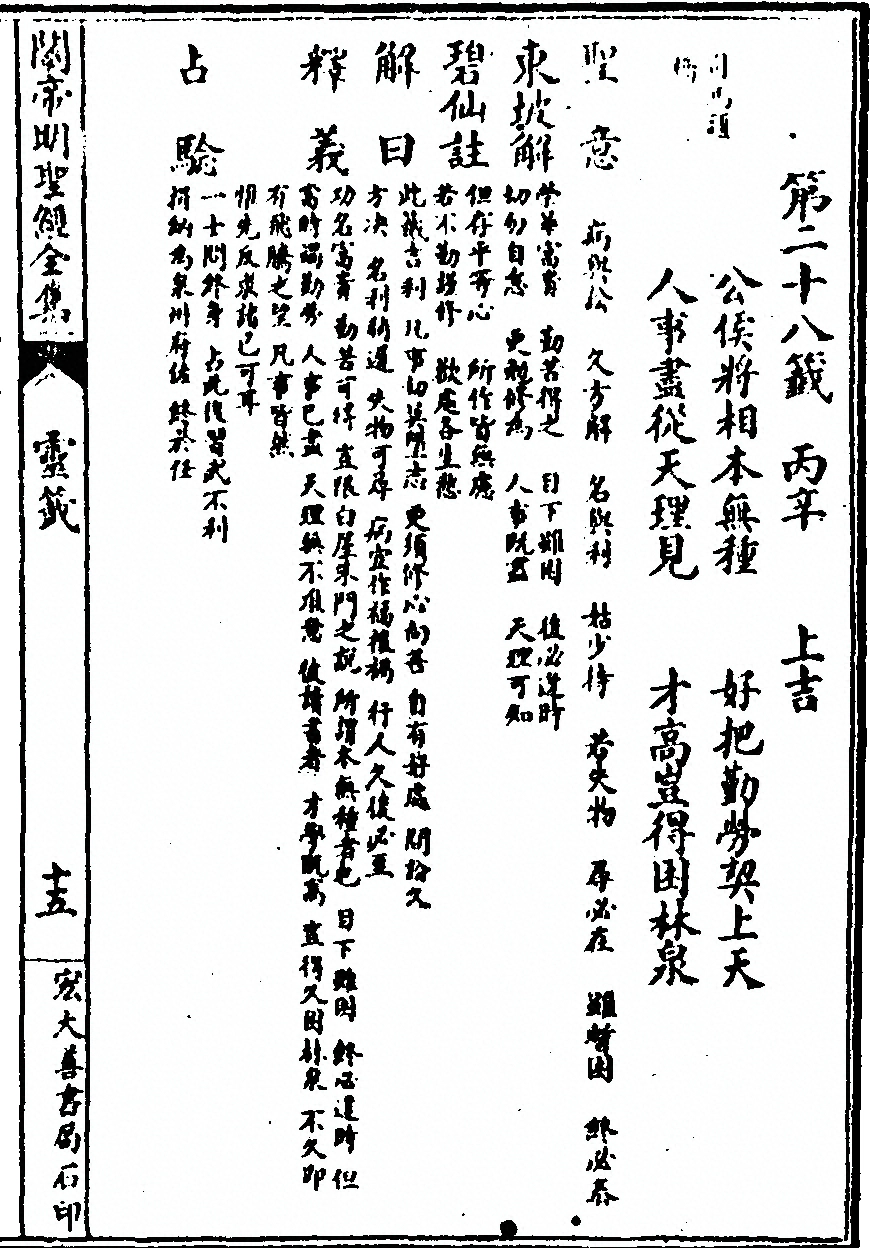 第二十八籤　丙辛　上吉
公侯將相本無種　好把勤勞契上天
人事盡從天理見　才高豈得困林泉
司馬題橋
聖意　病與訟　久方解　名與利　姑少待　若失物　尋必在　雖暫困　終必泰
東坡解　榮華富貴　勤苦得之　目下雖困　後必逢時
切勿自怠　更須修為　人事既盡　天理可知
碧仙註　但存平等心　所作皆無慮
若不勤謹修　歡處各生愁
解曰　此籤吉利　凡事切莫墮志　更須修心向善　自有好處　問訟久
方決　名利稍遲　失物可尋　病宜作福禳禱　行人久後必至
釋義　功名富貴　勤苦可得　豈限白屋朱門之說　所謂本無種者也　目下雖困　終必逢時　但
當時謁勤勞　人事已盡　天理無不准應　彼讀書者　才學既高　豈得久困林泉　不久即
有飛騰之望　凡事皆然
惟先反求諸已可耳
占驗　一士問終身　占此後習武不利
捐納為泉州府佐　終於任
關帝明聖經全集
靈籤
十五
宏大善書局石印